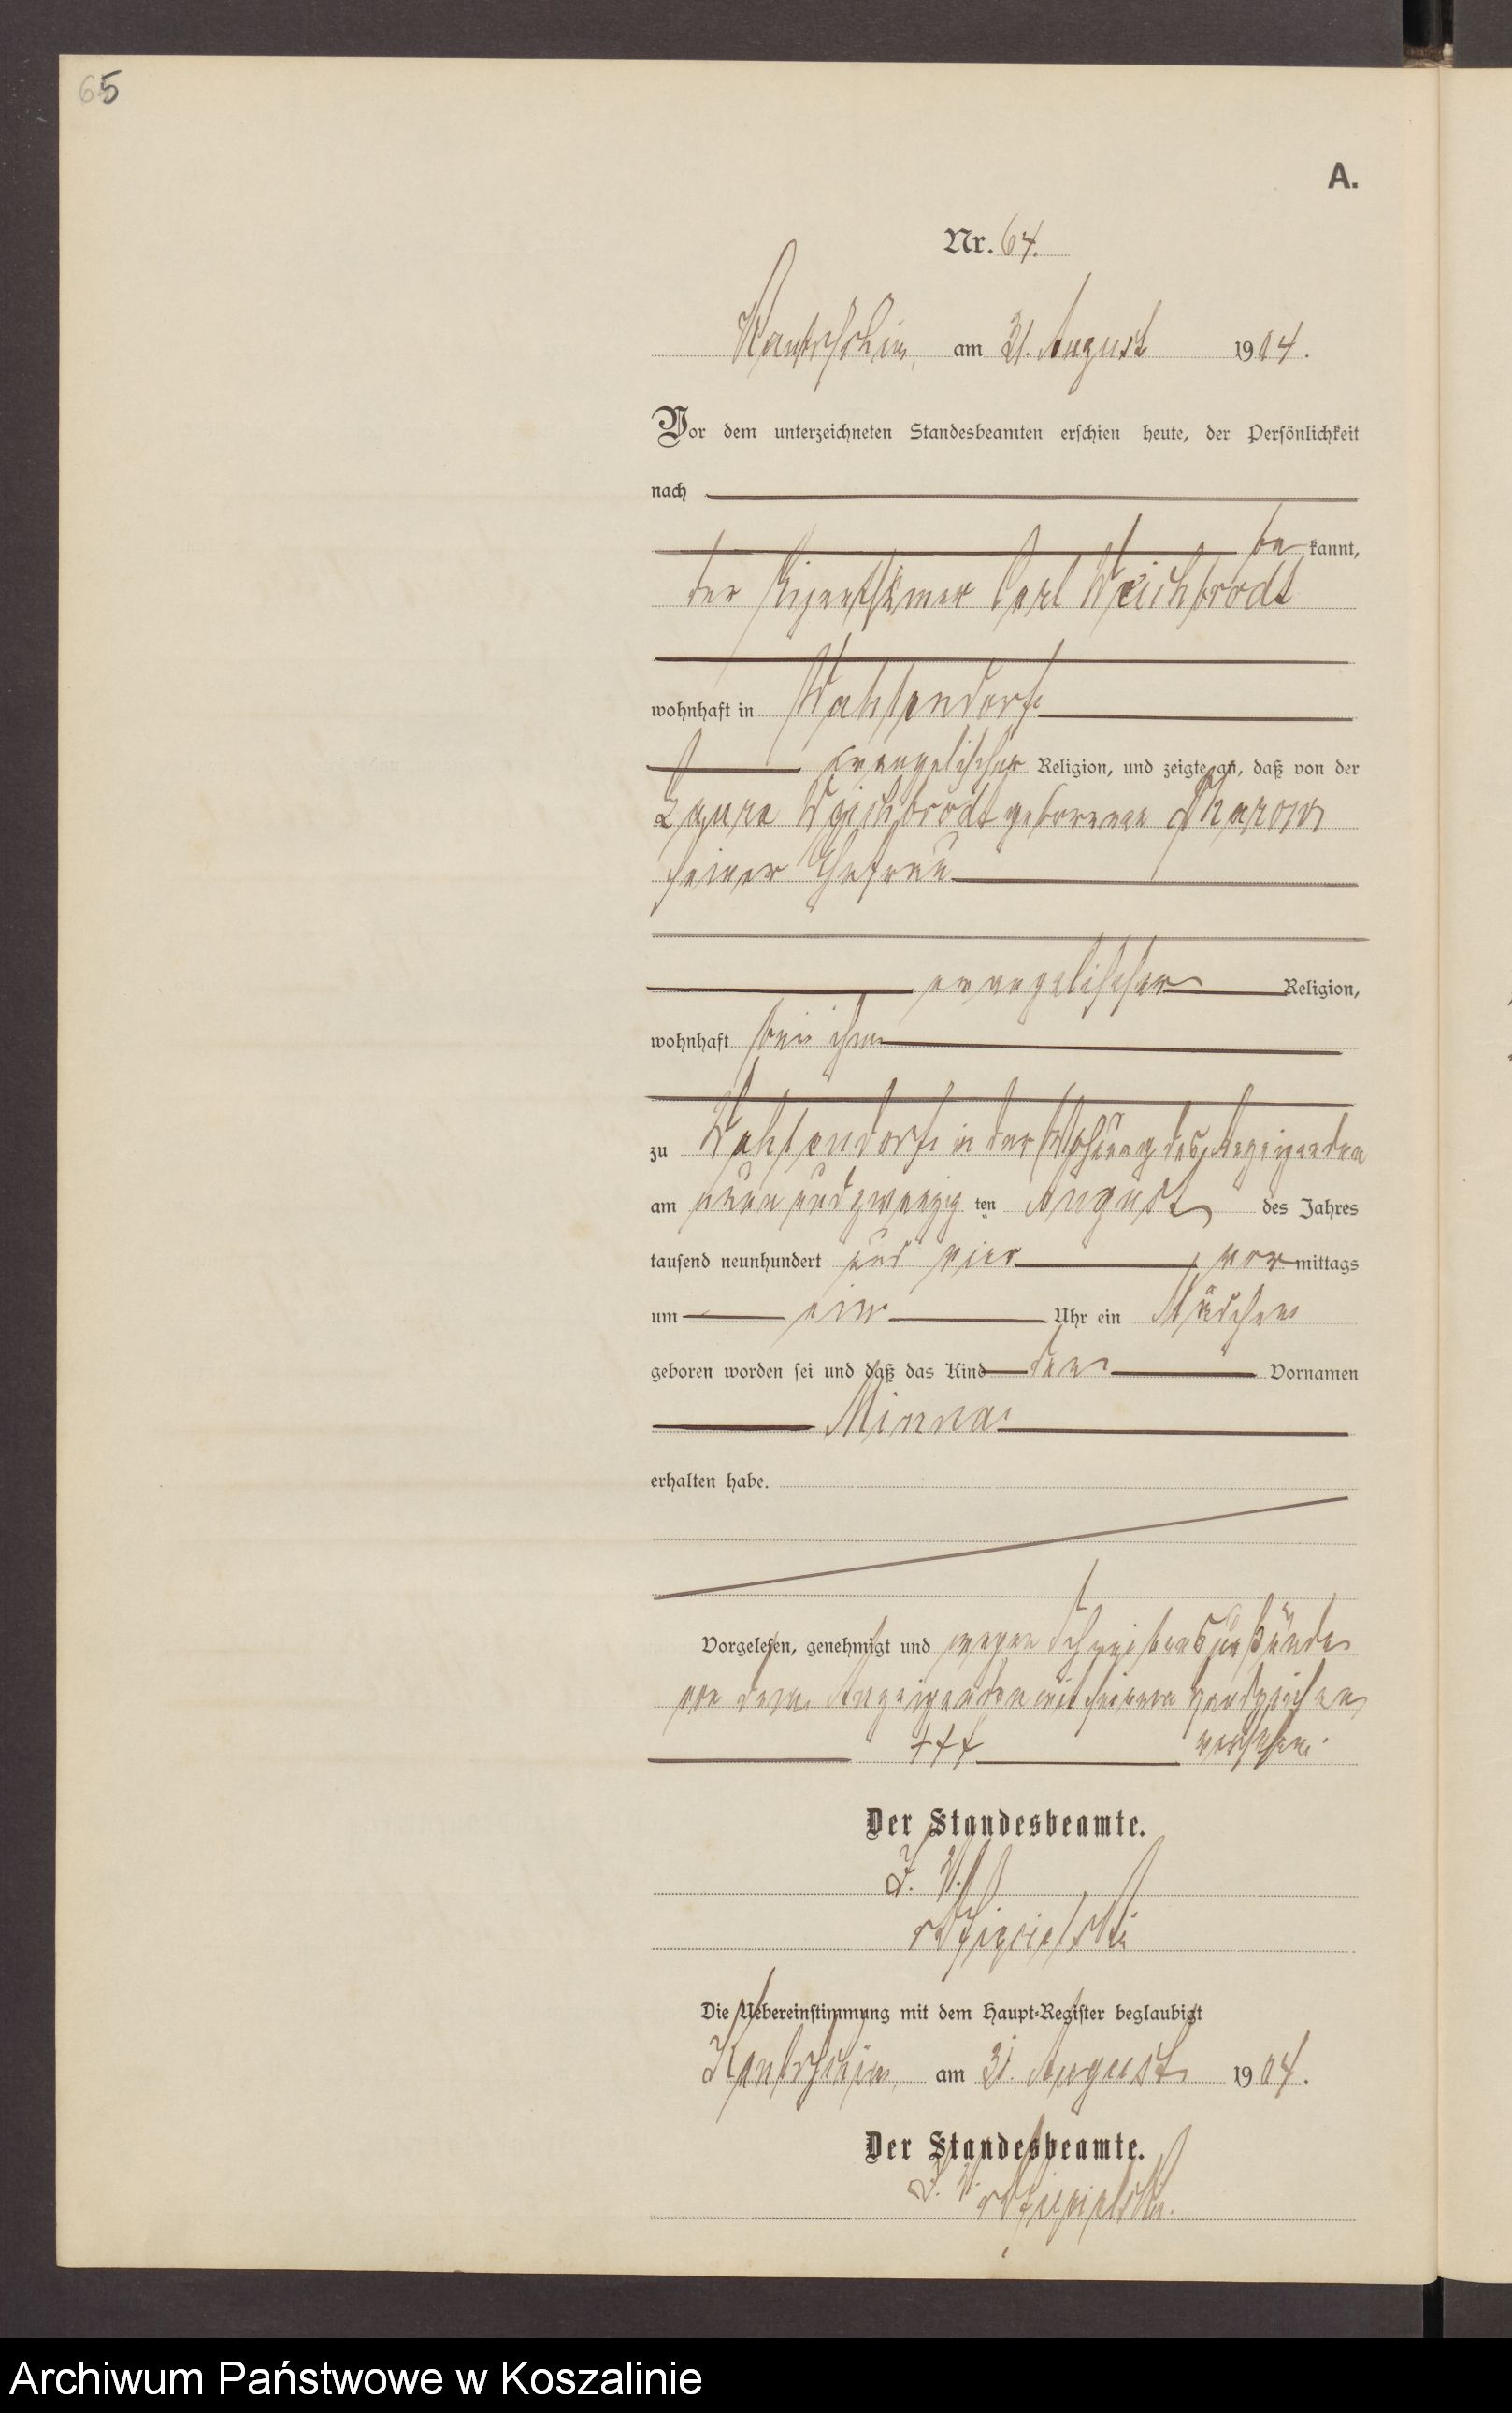 65
A.
Nr. 64.
am 31. August 1904.
Vor dem unterzeichneten Standesbeamten erschien heute, der Persönlichkeit
nach
be kannt,
der Eigenthümer Carl Weichbrodt
wohnhaft in
evangelischer Religion, und zeigte an, daß von der
Weichbrodt geborenen
seiner Ehefrau
evangelischer Religion,
wohnhaft bei ihm
zu in der Wohnung des Anzeigenden
am neun und zwanzig ten August des Jahres
tausend neunhundert und vier, vor mittags
um ein Uhr ein Mädchen
geboren worden sei und daß das Kind den Vornamen
Minna
erhalten habe.
Vorgelesen, genehmigt und wegen Schreibensunkunde
von dem Anzeigenden mit seinem Handzeichen
+++ versehen.
Der Standesbeamte.
I. V.
Die Uebereinstimmung mit dem Haupt-Register beglaubigt
am 31. August 1904.
Der Standesbeamte.
I. V.
Archiwum Państwowe w Koszalinie